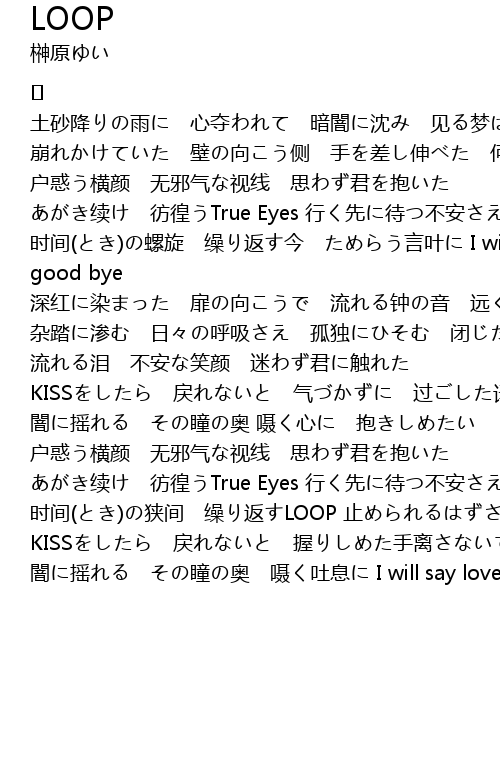 LOOP
榊原ゆい
[]
土砂降りの雨に　心夺われて　暗闇に沈み　见る梦は
崩れかけていた　壁の向こう侧　手を差し伸べた　何
户惑う横颜　无邪气な视线　思わず君を抱いた
あがき续け　彷徨うTrue Eyes 行く先に待つ不安さえ
时间(とき)の螺旋　缲り返す今　ためらう言叶に I wi
good bye
深红に染まった　扉の向こうで　流れる钟の音　远く
杂踏に渗む　日々の呼吸さえ　孤独にひそむ　闭じた
流れる泪　不安な笑颜　迷わず君に触れた
KISSをしたら　戻れないと　气づかずに　过ごした
闇に摇れる　その瞳の奥 嗫く心に　抱きしめたい
户惑う横颜　无邪气な视线　思わず君を抱いた
あがき续け　彷徨うTrue Eyes 行く先に待つ不安さえ
时间(とき)の狭间　缲り返すLOOP 止められるはずさ
KISSをしたら　戻れないと　握りしめた手离さないで
闇に摇れる　その瞳の奥　嗫く吐息に I will say love